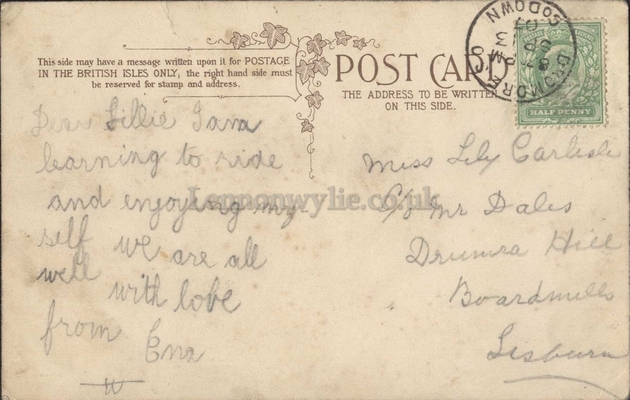 This side may have a message written upon it for POSTAGE
IN THE BRITISH ISLES ONLY, the right hand side must
be reserved for stamp and address.
POST CARD
THE ADDRESS TO BE WRITTEN
ON THIS SIDE.
DROMORE CO DOWN
HALF PENNY
Dear Lillie I am
learning to ride
and enjoying my-
self we are all
well with love
from Ena
Miss Lily Carlisle
C/o Mr Dales
Drumra Hill
Boardmills
Lisburn
Lennonwylie.co.uk